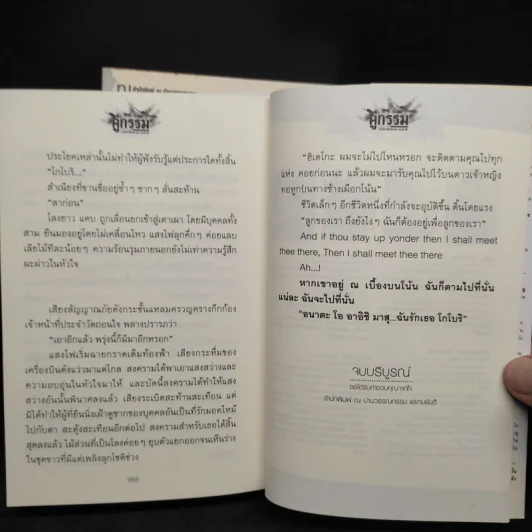 คู่กรรม
ประโยคเหล่านั้นไม่ทำให้ผู้ฟังรับรู้แต่ประการใดทั้งสิ้น
"โกโบริ..."
สำเนียงที่ขานชื่ออยู่ซ้ำๆ ซากๆ สั่นสะท้าน
"ลาก่อน"
โลงยาว แคบ ถูกเลื่อนยกเข้าสู่เตาเผา โดยมีบุคคลทั้ง
สาม ยืนมองอยู่โดยไม่เคลื่อนไหว แสงไฟลุกคึ่กๆ ค่อยแลบ
เลียไม้ทีละน้อยๆ ความร้อนรุมภายนอกยังไม่เท่าความรู้สึก
ผะผ่าวในหัวใจ
เสียงสัญญาณภัยดังกระชั้นแหลมครวญครางกึกก้อง
เจ้าหน้าที่ประจำวัดถอนใจ พลางปรารภว่า
"เอาอีกแล้ว พรุ่งนี้ก็มีมาอีกหรอก"
แสงไฟเริ่มฉายกราดเต็มท้องฟ้า เสียงกระหึ่มของ
เครื่องบินดังแว่วมาแต่ไกล สงครามได้พาเอาแสงสว่างและ
ความอบอุ่นในหัวใจมาให้ และบัดนี้สงครามได้ทำให้แสง
สว่างอันนั้นพินาศลงแล้ว เสียงระเบิดสะท้านสะเทือน แต่
มิได้ทำให้ผู้ที่ยืนนิ่งเฝ้าดูซากของบุคคลอันเป็นที่รักมอดไหม้
ไปกับตา สะดุ้งสะเทือนอีกต่อไป สงครามสำหรับเธอได้สิ้น
สุดลงแล้ว ไม้ส่วนที่เป็นโลงค่อยๆ ยุบตัวแยกออกจนเห็นร่าง
ในชุดขาวที่มีแต่เพลิงลุกโชติช่วง
988
คู่กรรม
"ฮิเดโกะ ผมจะไม่ไปไหนหรอก จะติดตามคุณไปทุก
แห่ง คอยก่อนนะ แล้วผมจะมารับคุณไปไว้บนดาวเจ้าหญิง
ทอหูกริมทางช้างเผือกโน้น"
ชีวิตเล็กๆ อีกชีวิตหนึ่งที่กำลังจะอุบัติขึ้น ดิ้นโดยแรง
"ลูกของเรา ถึงยังไงๆ ฉันก็ต้องอยู่เพื่อลูกของเรา"
And if thou stay up yonder then I shall meet
thee there, Then I shall meet thee there
Ah...!
หากเขาอยู่ ณ เบื้องบนโน้น ฉันก็ตามไปที่นั่น
แน่ละ ฉันจะไปที่นั่น
"อนาตะ โอ อาอิชิ มาสุ...ฉันรักเธอ โกโบริ"
จบบริบูรณ์
ขอได้รับคำขอบคุณจากใจ
สำนักพิมพ์ ณ บ้านวรรณกรรม และทมยันตี